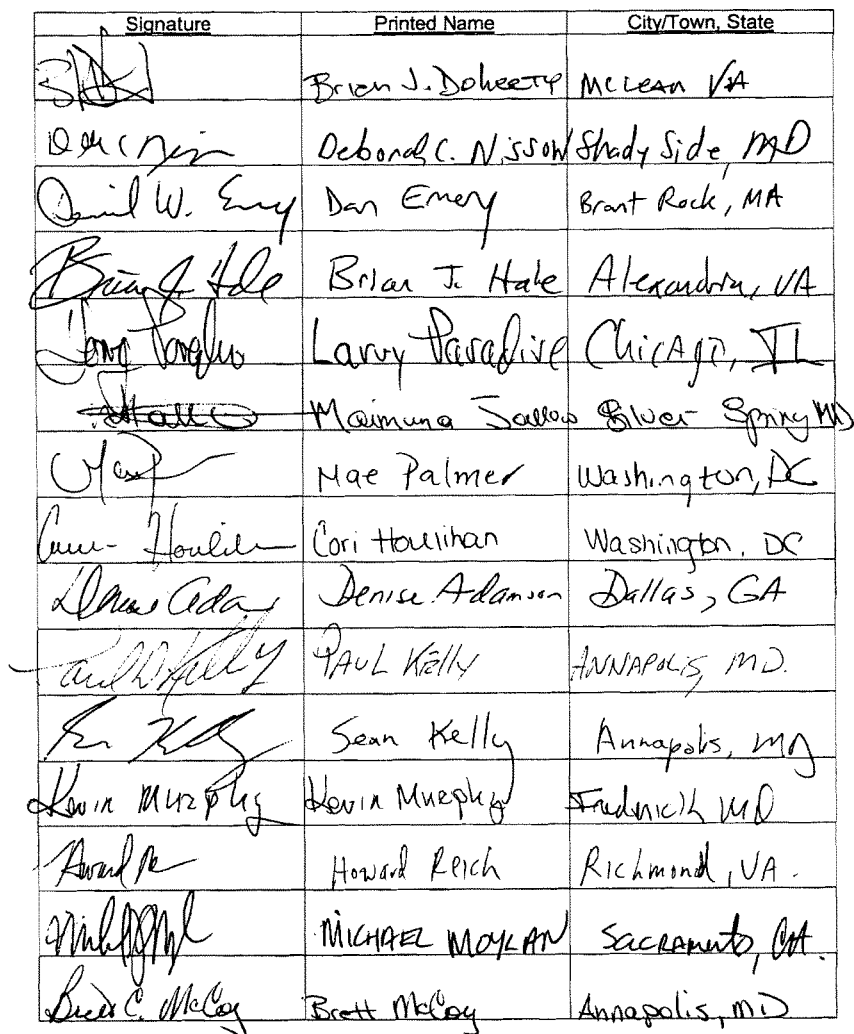 Signature Printed Name City/Town, State
Brian J. Doherty McLean VA
Deborah C. Nisson Shady Side, MD
Daniel W. Emery Dan Emery Brant Rock, MA
Brian J. Hale Brian J. Hale Alexandria, VA
Larry Paradise Chicago, IL
Maimuna Jallow Silver Spring MD
Mae Palmer Washington, DC
Houlihan Cori Houlihan Washington, DC
Denise Adamson Dallas, GA
Paul D Kelly PAUL Kelly ANNAPOLIS, MD.
Kelly Sean Kelly Annapolis, MD
Kevin Murphy Kevin Murphy Frederick MD
Howard Reich Richmond, VA.
MICHAEL MOYLAN SACRAMENTO, CA.
Brett C. McCoy Brett McCoy Annapolis, MD